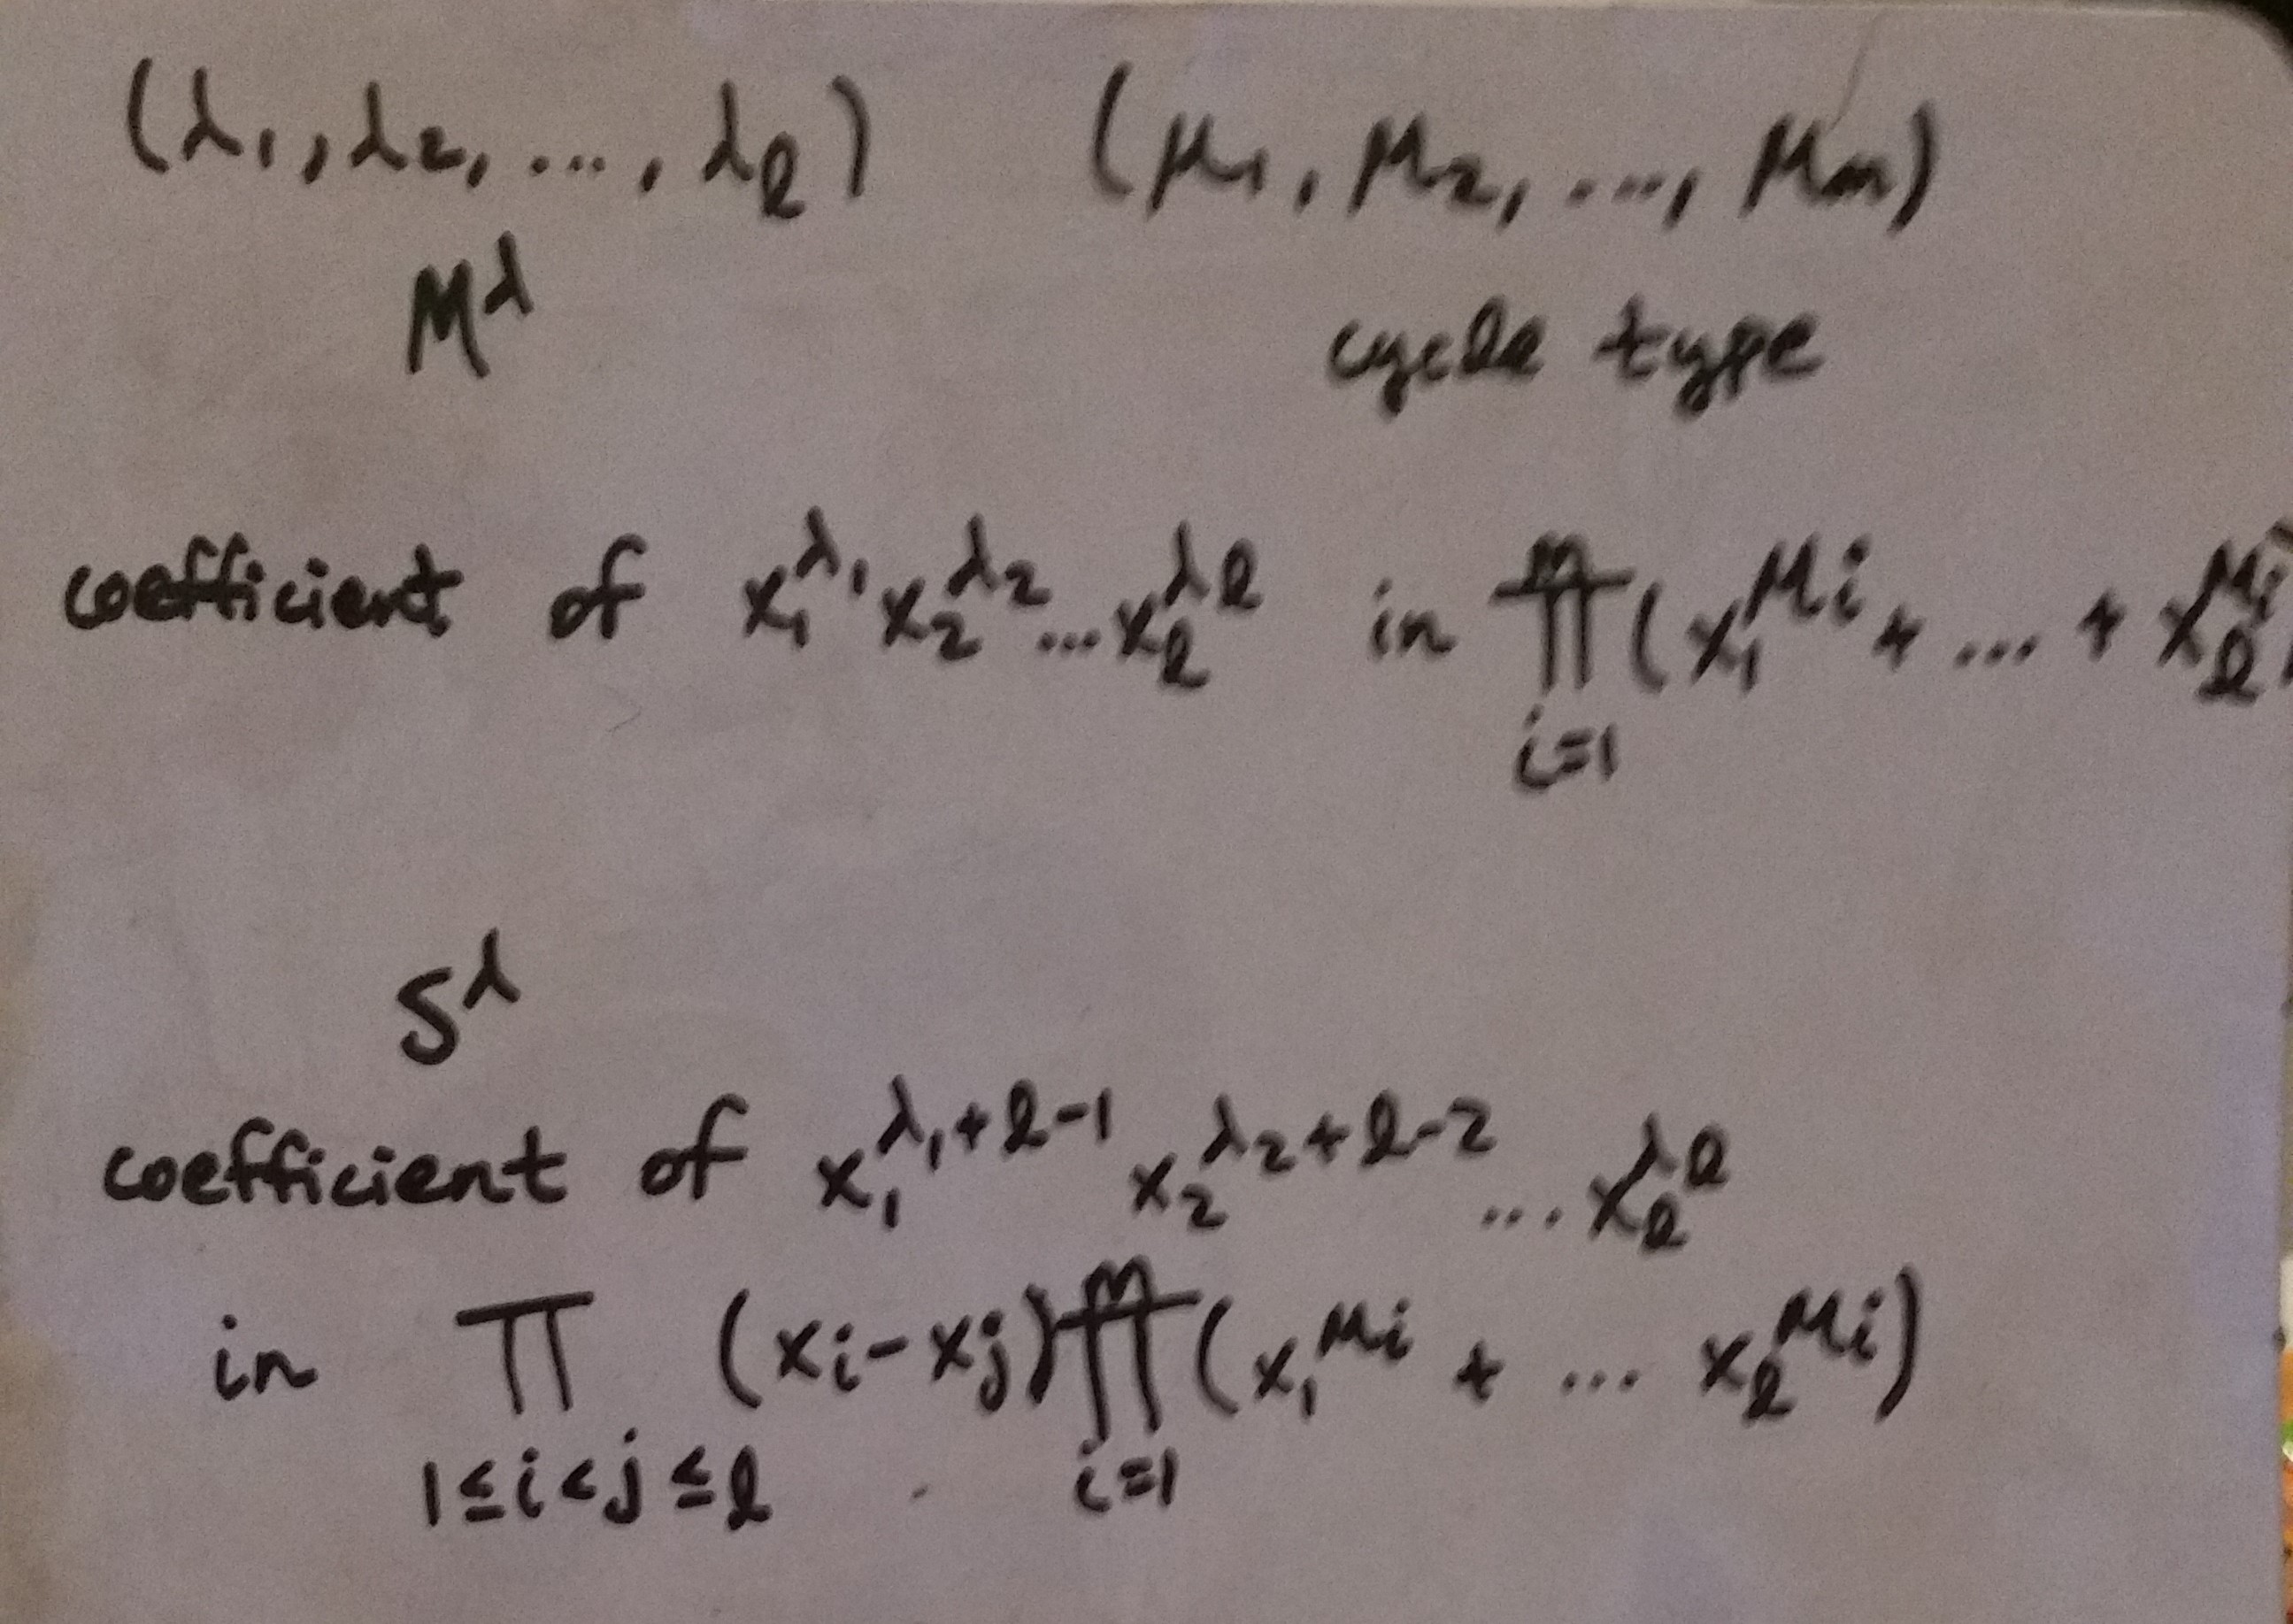 (λ₁, λ₂, ..., λₗ) (μ₁, μ₂, ..., μₘ)
M^λ cycle type
coefficient of x₁^λ₁ x₂^λ₂ ... xₗ^λₗ in ∏_{i=1}^{m} (x₁^μᵢ + ... + xₗ^μᵢ)
S^λ
coefficient of x₁^{λ₁+l-1} x₂^{λ₂+l-2} ... xₗ^λₗ
in ∏_{1≤i<j≤l} (xᵢ-xⱼ) ∏_{i=1}^{m} (x₁^μᵢ + ... xₗ^μᵢ)